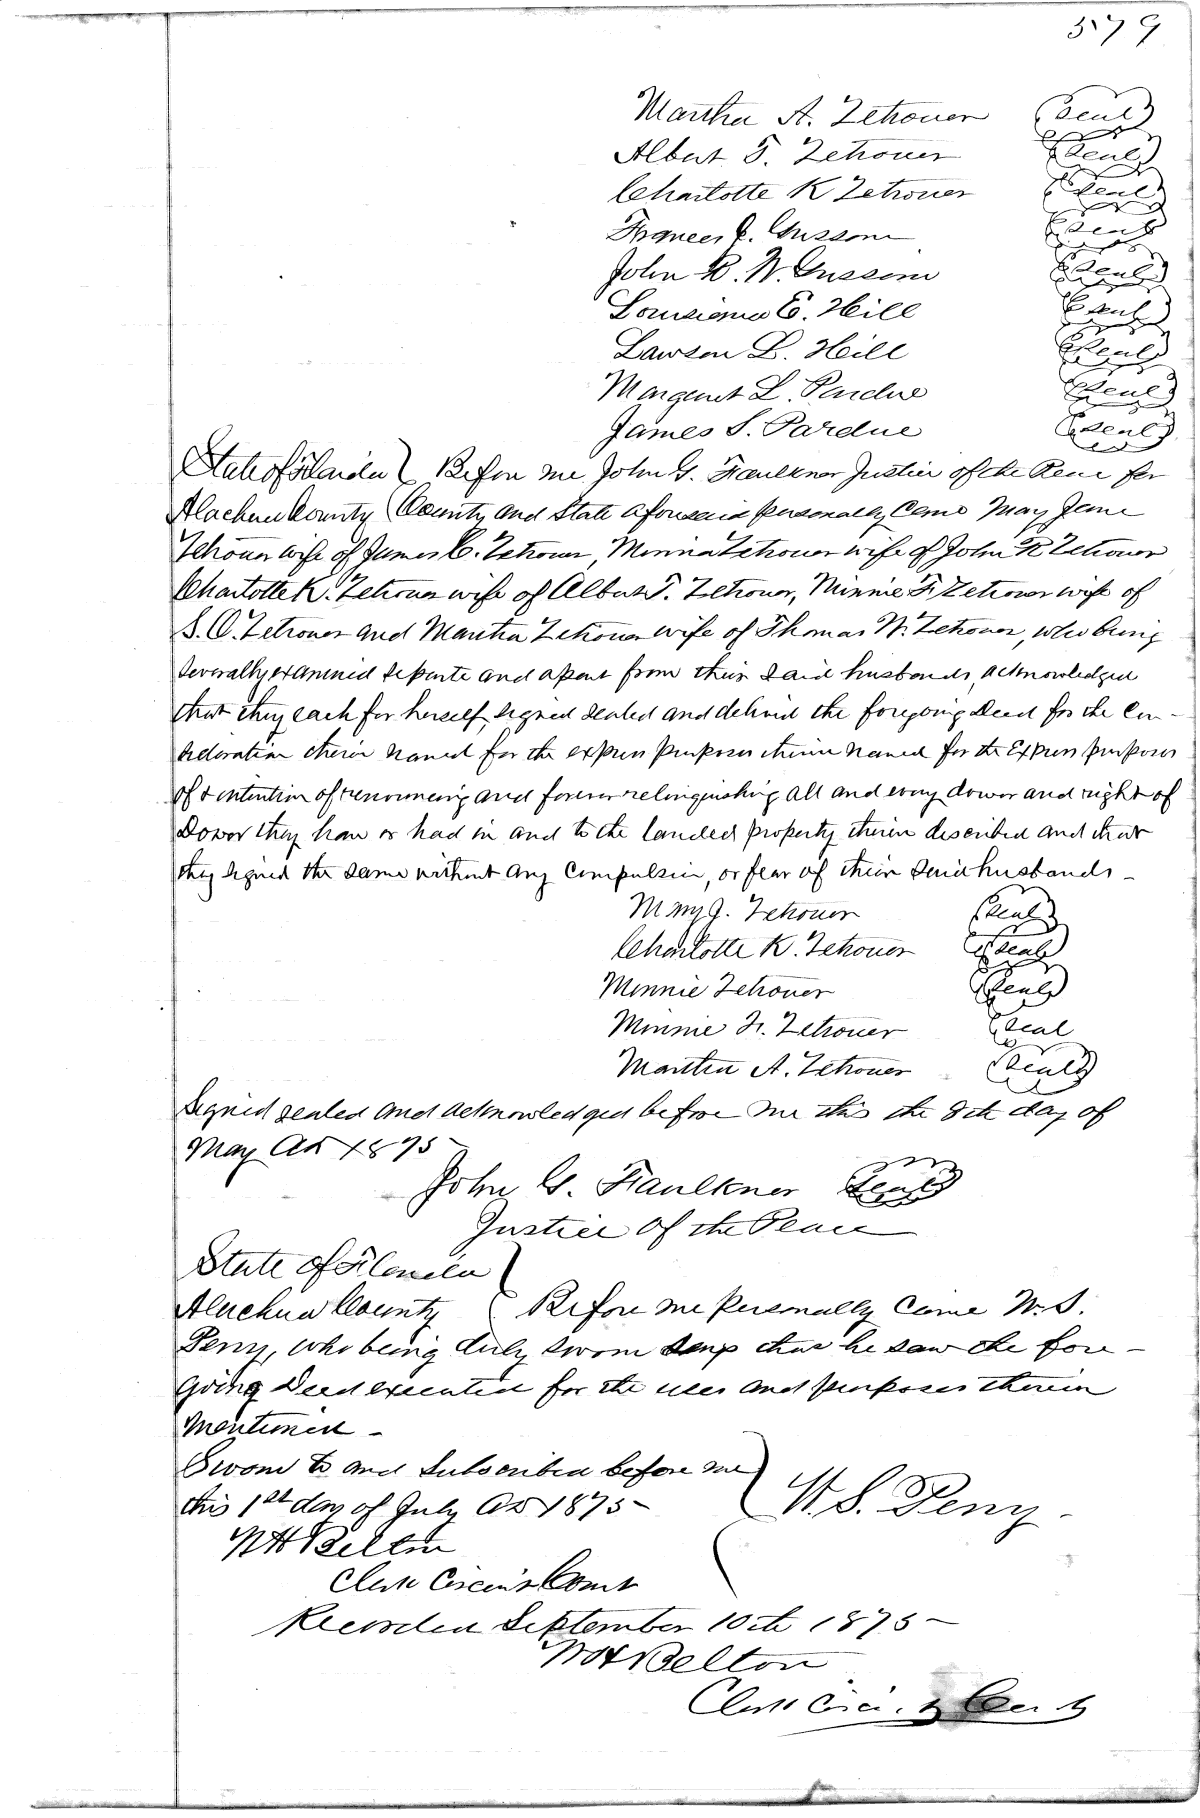 579
Martha A. Zetrouer (Seal)
Albert T. Zetrouer (Seal)
Charlotte K Zetrouer (Seal)
Frances J. Sussom (Seal)
John R. W. Sussom (Seal)
Louisiana E. Hill (Seal)
Lawson L. Hill (Seal)
Margaret L. Pardue (Seal)
James S. Pardue (Seal)
State of Florida } Before me John G. Faulkner Justice of the Peace for
Alachua County { County and State aforesaid personally Came Mary Jane
Zetrouer wife of James C. Zetrouer, Minnie Zetrouer wife of John R Zetrouer
Charlotte K. Zetrouer wife of Albert T. Zetrouer, Minnie F. Zetrouer wife of
S. O. Zetrouer and Martha Zetrouer wife of Thomas W. Zetrouer, who being
severally examined seperate and apart from their said husbands, acknowledged
that they each for herself, signed sealed and deliverd the foregoing Deed for the Con-
sideration therein named for the express purposes therein named for the Express purposes
of & intention of renouncing and forever relinquishing all and every dower and right of
Dower they have or had in and to the landed property therein described and that
they signed the same without any Compulsion, or fear of their said husbands -
Mary J. Zetrouer (Seal)
Charlotte K. Zetrouer (Seal)
Minnie Zetrouer (Seal)
Minnie F. Zetrouer (Seal
Martha A. Zetrouer (Seal)
Signed sealed and acknowledged before me this the 8th day of
May AD 1875
John G. Faulkner (Seal)
Justice of the Peace
State of Florida }
Alachua County { Before me personally Came W. S.
Perry, who being duly sworn says that he saw the fore-
going Deed executed for the uses and purposes therein
mentioned -
Sworn to and subscribed before me }
this 1st day of July AD 1875 - { W. S. Perry
Belton
Clerk Circuit Court
Recorded September 10th 1875 -
Belton
Clerk Circuit Court